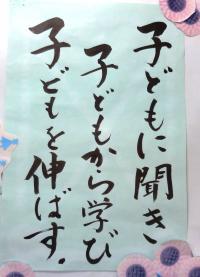 子どもに聞き
子どもから学び
子どもを伸ばす.